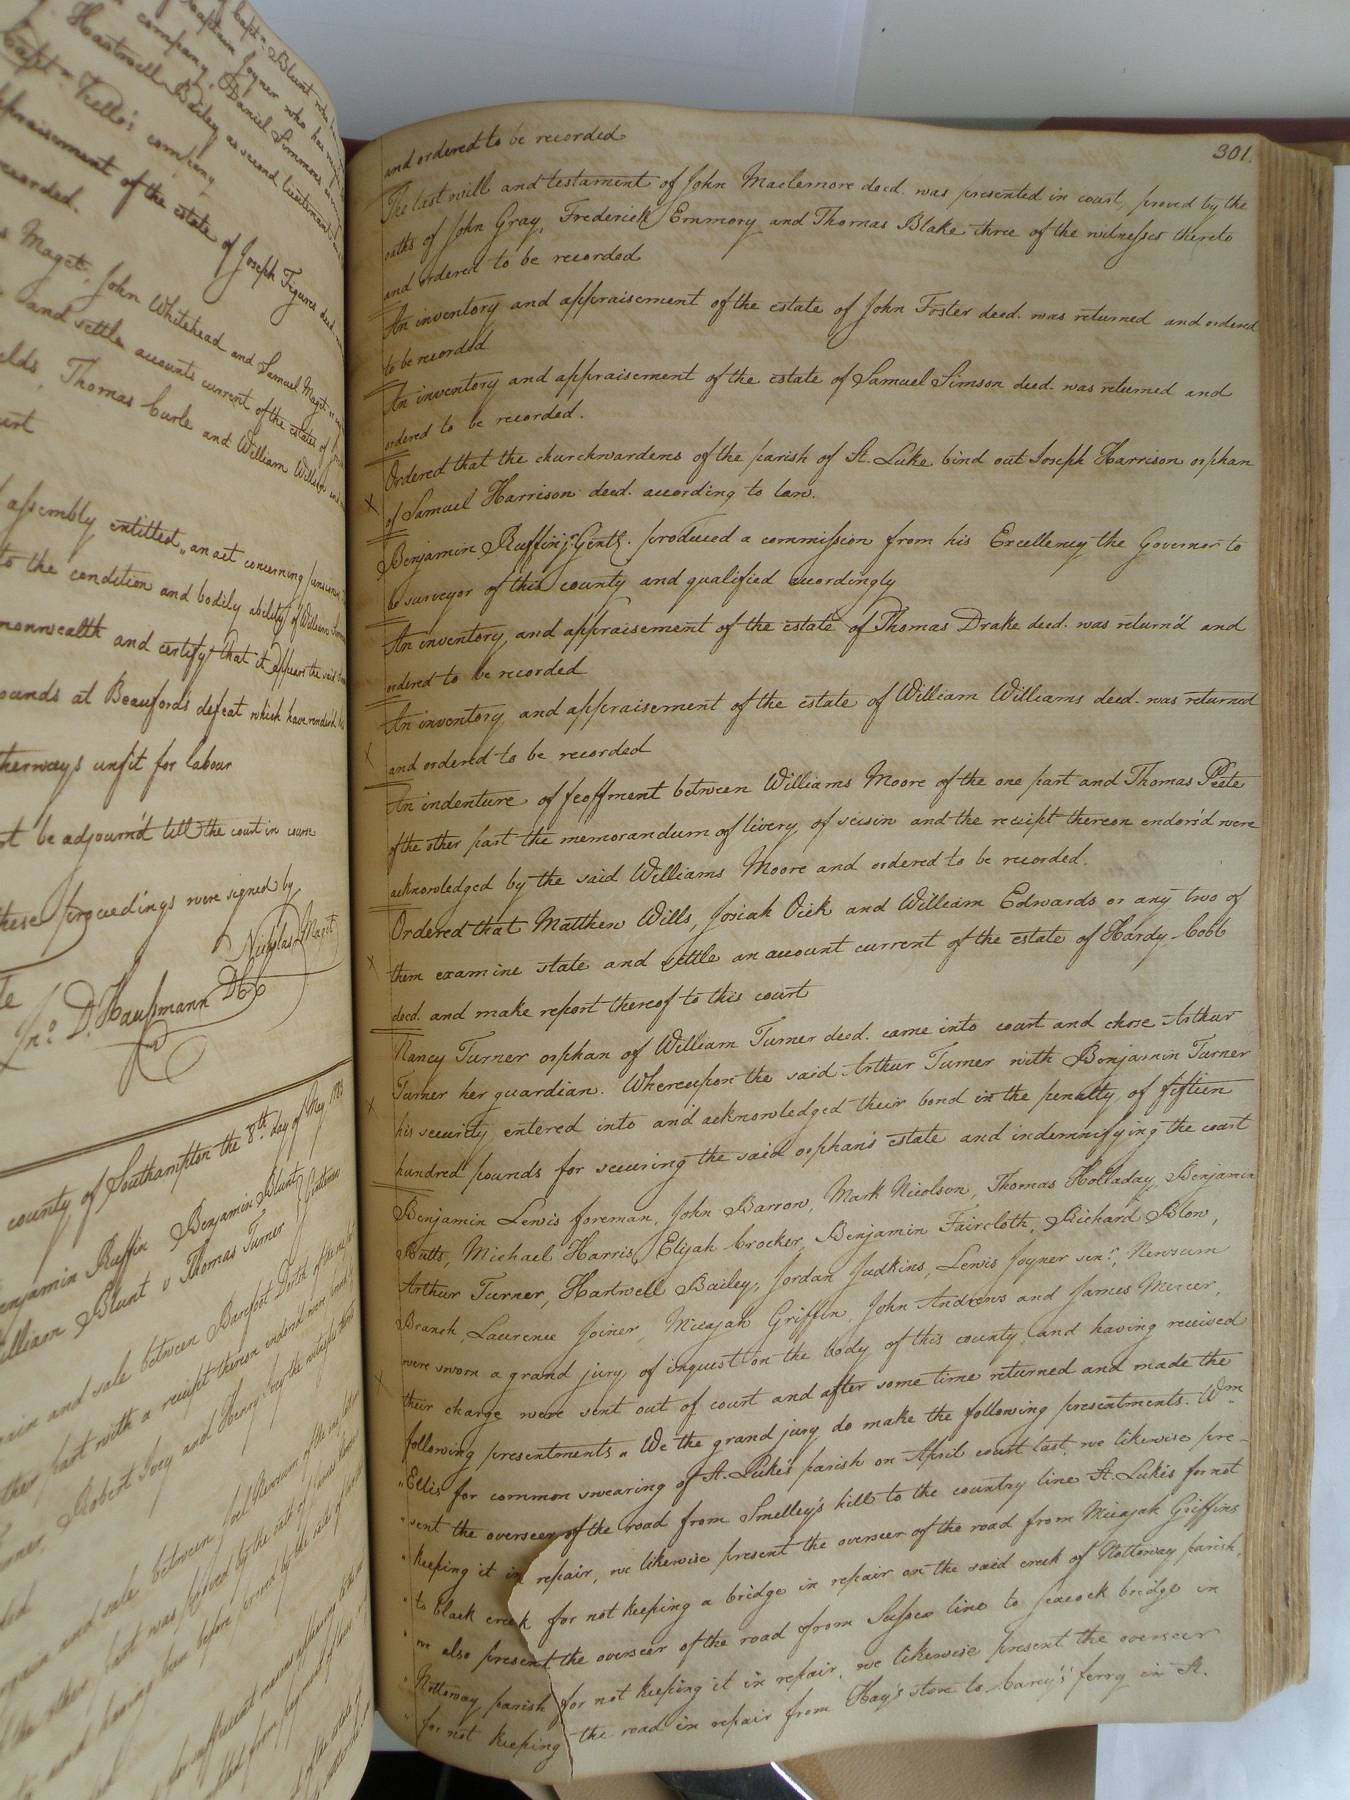 Captn. Blunt who
Captain Joyner who has
company, Daniel Simmons
Hartwell Bailey as second lieutenant
Captn. Kello's company
appraisement of the estate of Joseph Figures decd.
recorded.
Maget, John Whitehead and Samuel Maget
and settle accounts current of the estates of
Thomas Curle and William
assembly entitled "an act concerning pensioners
to the condition and bodily ability of William
monwealth and certify that it appears the said
ounds at Beauford's defeat which have
therways unfit for labour
be adjourn'd till the court in course
these proceedings were signed by
Nicholas Maget
Jno. D. Haussmann DC
county of Southampton the 8th. day of May 178
enjamin Ruffin Benjamin Blunt
illiam Blunt & Thomas Turner Gentlemen
and sale between Barefoot
ther part with a receipt thereon indors'd were
Robert Ivey and Henry Ivey the witnesses
and sale between
the other part was proved by the oath of
and having been before proved by the oath of
301.
and ordered to be recorded
The last will and testament of John Maclemore decd. was presented in court, proved by the
oaths of John Gray, Frederick Emmory and Thomas Blake three of the witnesses thereto
and ordered to be recorded
An inventory and appraisement of the estate of John Foster decd. was returned and ordered
to be recorded
An inventory and appraisement of the estate of Samuel Simson decd. was returned and
ordered to be recorded.
Ordered that the churchwardens of the parish of St. Luke bind out Joseph Harrison orphan
X of Samuel Harrison decd. according to law.
Benjamin Ruffin jr. Gentl. produced a commission from his Excellency the Governor to
be surveyor of this county and qualified accordingly
An inventory and appraisement of the estate of Thomas Drake decd. was return'd and
ordered to be recorded
An inventory and appraisement of the estate of William Williams decd. was returned
X and ordered to be recorded
An indenture of feoffment between Williams Moore of the one part and Thomas Peete
of the other part the memorandum of livery of seisin and the receipt thereon endors'd were
acknowledged by the said Williams Moore and ordered to be recorded.
Ordered that Matthew Wills, Josiah Vick and William Edwards or any two of
X them examine state and settle an account current of the estate of Hardy Cobb
decd. and make report thereof to this court
Nancy Turner orphan of William Turner decd. came into court and chose Arthur
Turner her guardian. Whereupon the said Arthur Turner with Benjamin Turner
X his security entered into and acknowledged their bond in the penalty of fifteen
hundred pounds for securing the said orphan's estate and indemnifying the court
Benjamin Lewis foreman, John Barrow, Mark Nicolson, Thomas Holladay, Benjamin
Butts, Michael Harris, Elijah Crocker, Benjamin Faircloth, Richard Blow,
Arthur Turner, Hartwell Bailey, Jordan Judkins, Lewis Joyner senr., Newsum
Branch, Laurence Joiner, Micajah Griffin, John Andrews and James Mercer,
were sworn a grand jury of inquest on the body of this county, and having received
X their charge were sent out of court and after some time returned and made the
following presentments „ We the grand jury do make the following presentments. Wm.
„ Ellis for common swearing of St. Luke's parish on April court last, we likewise pre-
„ sent the overseer of the road from Smelley's hill to the country line St. Luke's for not
„ keeping it in repair, we likewise present the overseer of the road from Micajah Griffins
„ to black creek for not keeping a bridge in repair on the said creek of Nottoway parish,
„ we also present the overseer of the road from Sussex line to peacock bridge in
„ Nottoway parish for not keeping it in repair, we likewise present the overseer
„ for not keeping the road in repair from Hay's store to Carey's ferry in St.